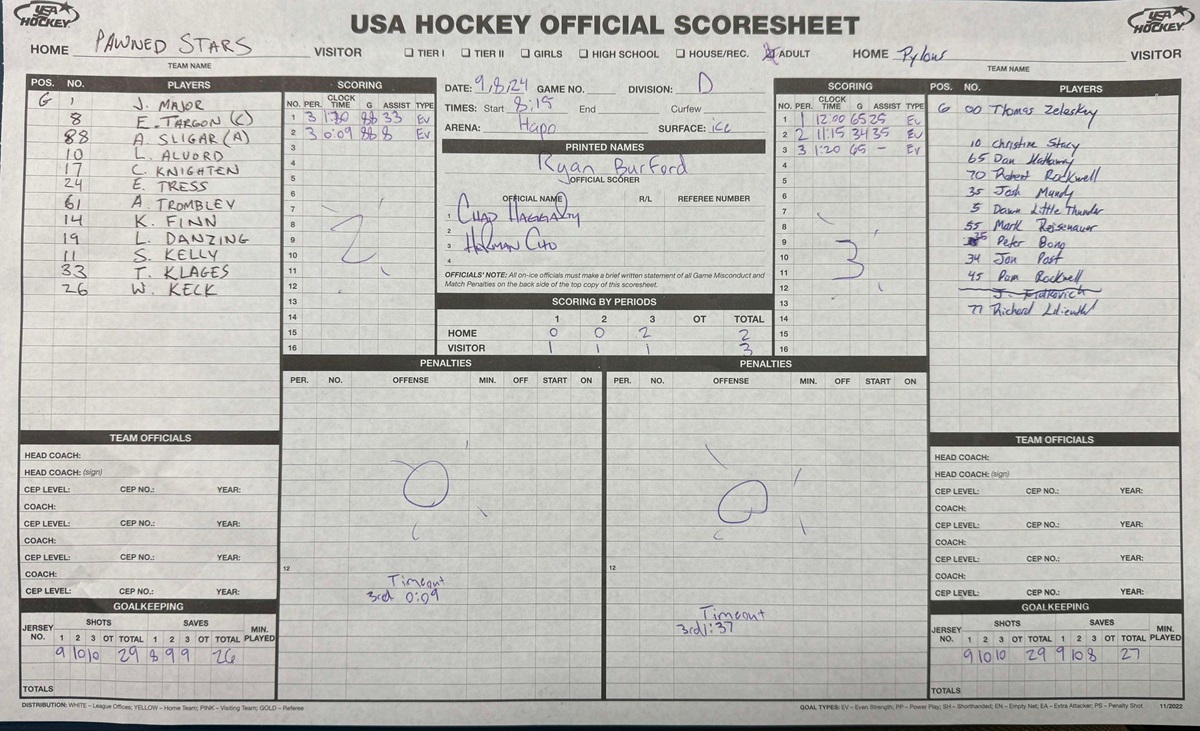 USA HOCKEY
USA HOCKEY OFFICIAL SCORESHEET
USA HOCKEY
HOME PAWNED STARS VISITOR
TEAM NAME
☐ TIER I ☐ TIER II ☐ GIRLS ☐ HIGH SCHOOL ☐ HOUSE/REC. ☒ ADULT
HOME Pylons VISITOR
TEAM NAME
POS. NO. PLAYERS
G 1 J. MAJOR
8 E. TARGON (C)
88 A. SLIGAR (A)
10 L. ALVORD
17 C. KNIGHTEN
24 E. TRESS
61 A. TROMBLEY
14 K. FINN
19 L. DANZING
11 S. KELLY
33 T. KLAGES
26 W. KECK
SCORING
NO. PER. CLOCK TIME G ASSIST TYPE
1 3 88 33 Ev
2 3 0:09 88 8 Ev
3
4
5
6
7
8
9
10
11
12
13
14
15
16
2
DATE: 9/8/24 GAME NO. DIVISION: D
TIMES: Start 8:15 End Curfew
ARENA: Hapo SURFACE: ice
PRINTED NAMES
Ryan Burford
OFFICIAL SCORER
OFFICIAL NAME R/L REFEREE NUMBER
1 CHAD HAGGARTY
2
3 HERMAN CHO
4
OFFICIALS' NOTE: All on-ice officials must make a brief written statement of all Game Misconduct and
Match Penalties on the back side of the top copy of this scoresheet.
SCORING BY PERIODS
1 2 3 OT TOTAL
HOME 0 0 2 2
VISITOR 1 1 1 3
SCORING
NO. PER. CLOCK TIME G ASSIST TYPE
1 1 12:00 65 25 Ev
2 2 11:15 34 35 Ev
3 3 1:20 65 - Ev
4
5
6
7
8
9
10
11
12
13
14
15
16
3
POS. NO. PLAYERS
G 00 Thomas Zelasky
10 Christine Stacy
65 Dan Hattaway
70 Robert Rockwell
35 Josh Mundy
5 Dawn Little Thunder
55 Mark
25 Peter Bong
34 Jon Post
45 Pam Rockwell
77 Richard Lilienthal
PENALTIES
PER. NO. OFFENSE MIN. OFF START ON
0
12
Timeout
3rd 0:09
PENALTIES
PER. NO. OFFENSE MIN. OFF START ON
0
12
Timeout
3rd 1:37
TEAM OFFICIALS
HEAD COACH:
HEAD COACH: (sign)
CEP LEVEL: CEP NO.: YEAR:
COACH:
CEP LEVEL: CEP NO.: YEAR:
COACH:
CEP LEVEL: CEP NO.: YEAR:
COACH:
CEP LEVEL: CEP NO.: YEAR:
GOALKEEPING
JERSEY NO. SHOTS SAVES MIN. PLAYED
1 2 3 OT TOTAL 1 2 3 OT TOTAL
9 10 10 29 8 9 9 26
TOTALS
TEAM OFFICIALS
HEAD COACH:
HEAD COACH: (sign)
CEP LEVEL: CEP NO.: YEAR:
COACH:
CEP LEVEL: CEP NO.: YEAR:
COACH:
CEP LEVEL: CEP NO.: YEAR:
COACH:
CEP LEVEL: CEP NO.: YEAR:
GOALKEEPING
JERSEY NO. SHOTS SAVES MIN. PLAYED
1 2 3 OT TOTAL 1 2 3 OT TOTAL
9 10 10 29 9 10 8 27
TOTALS
DISTRIBUTION: WHITE – League Offices; YELLOW – Home Team; PINK – Visiting Team; GOLD – Referee
GOAL TYPES: EV – Even Strength; PP – Power Play; SH – Shorthanded; EN – Empty Net; EA – Extra Attacker; PS – Penalty Shot 11/2022